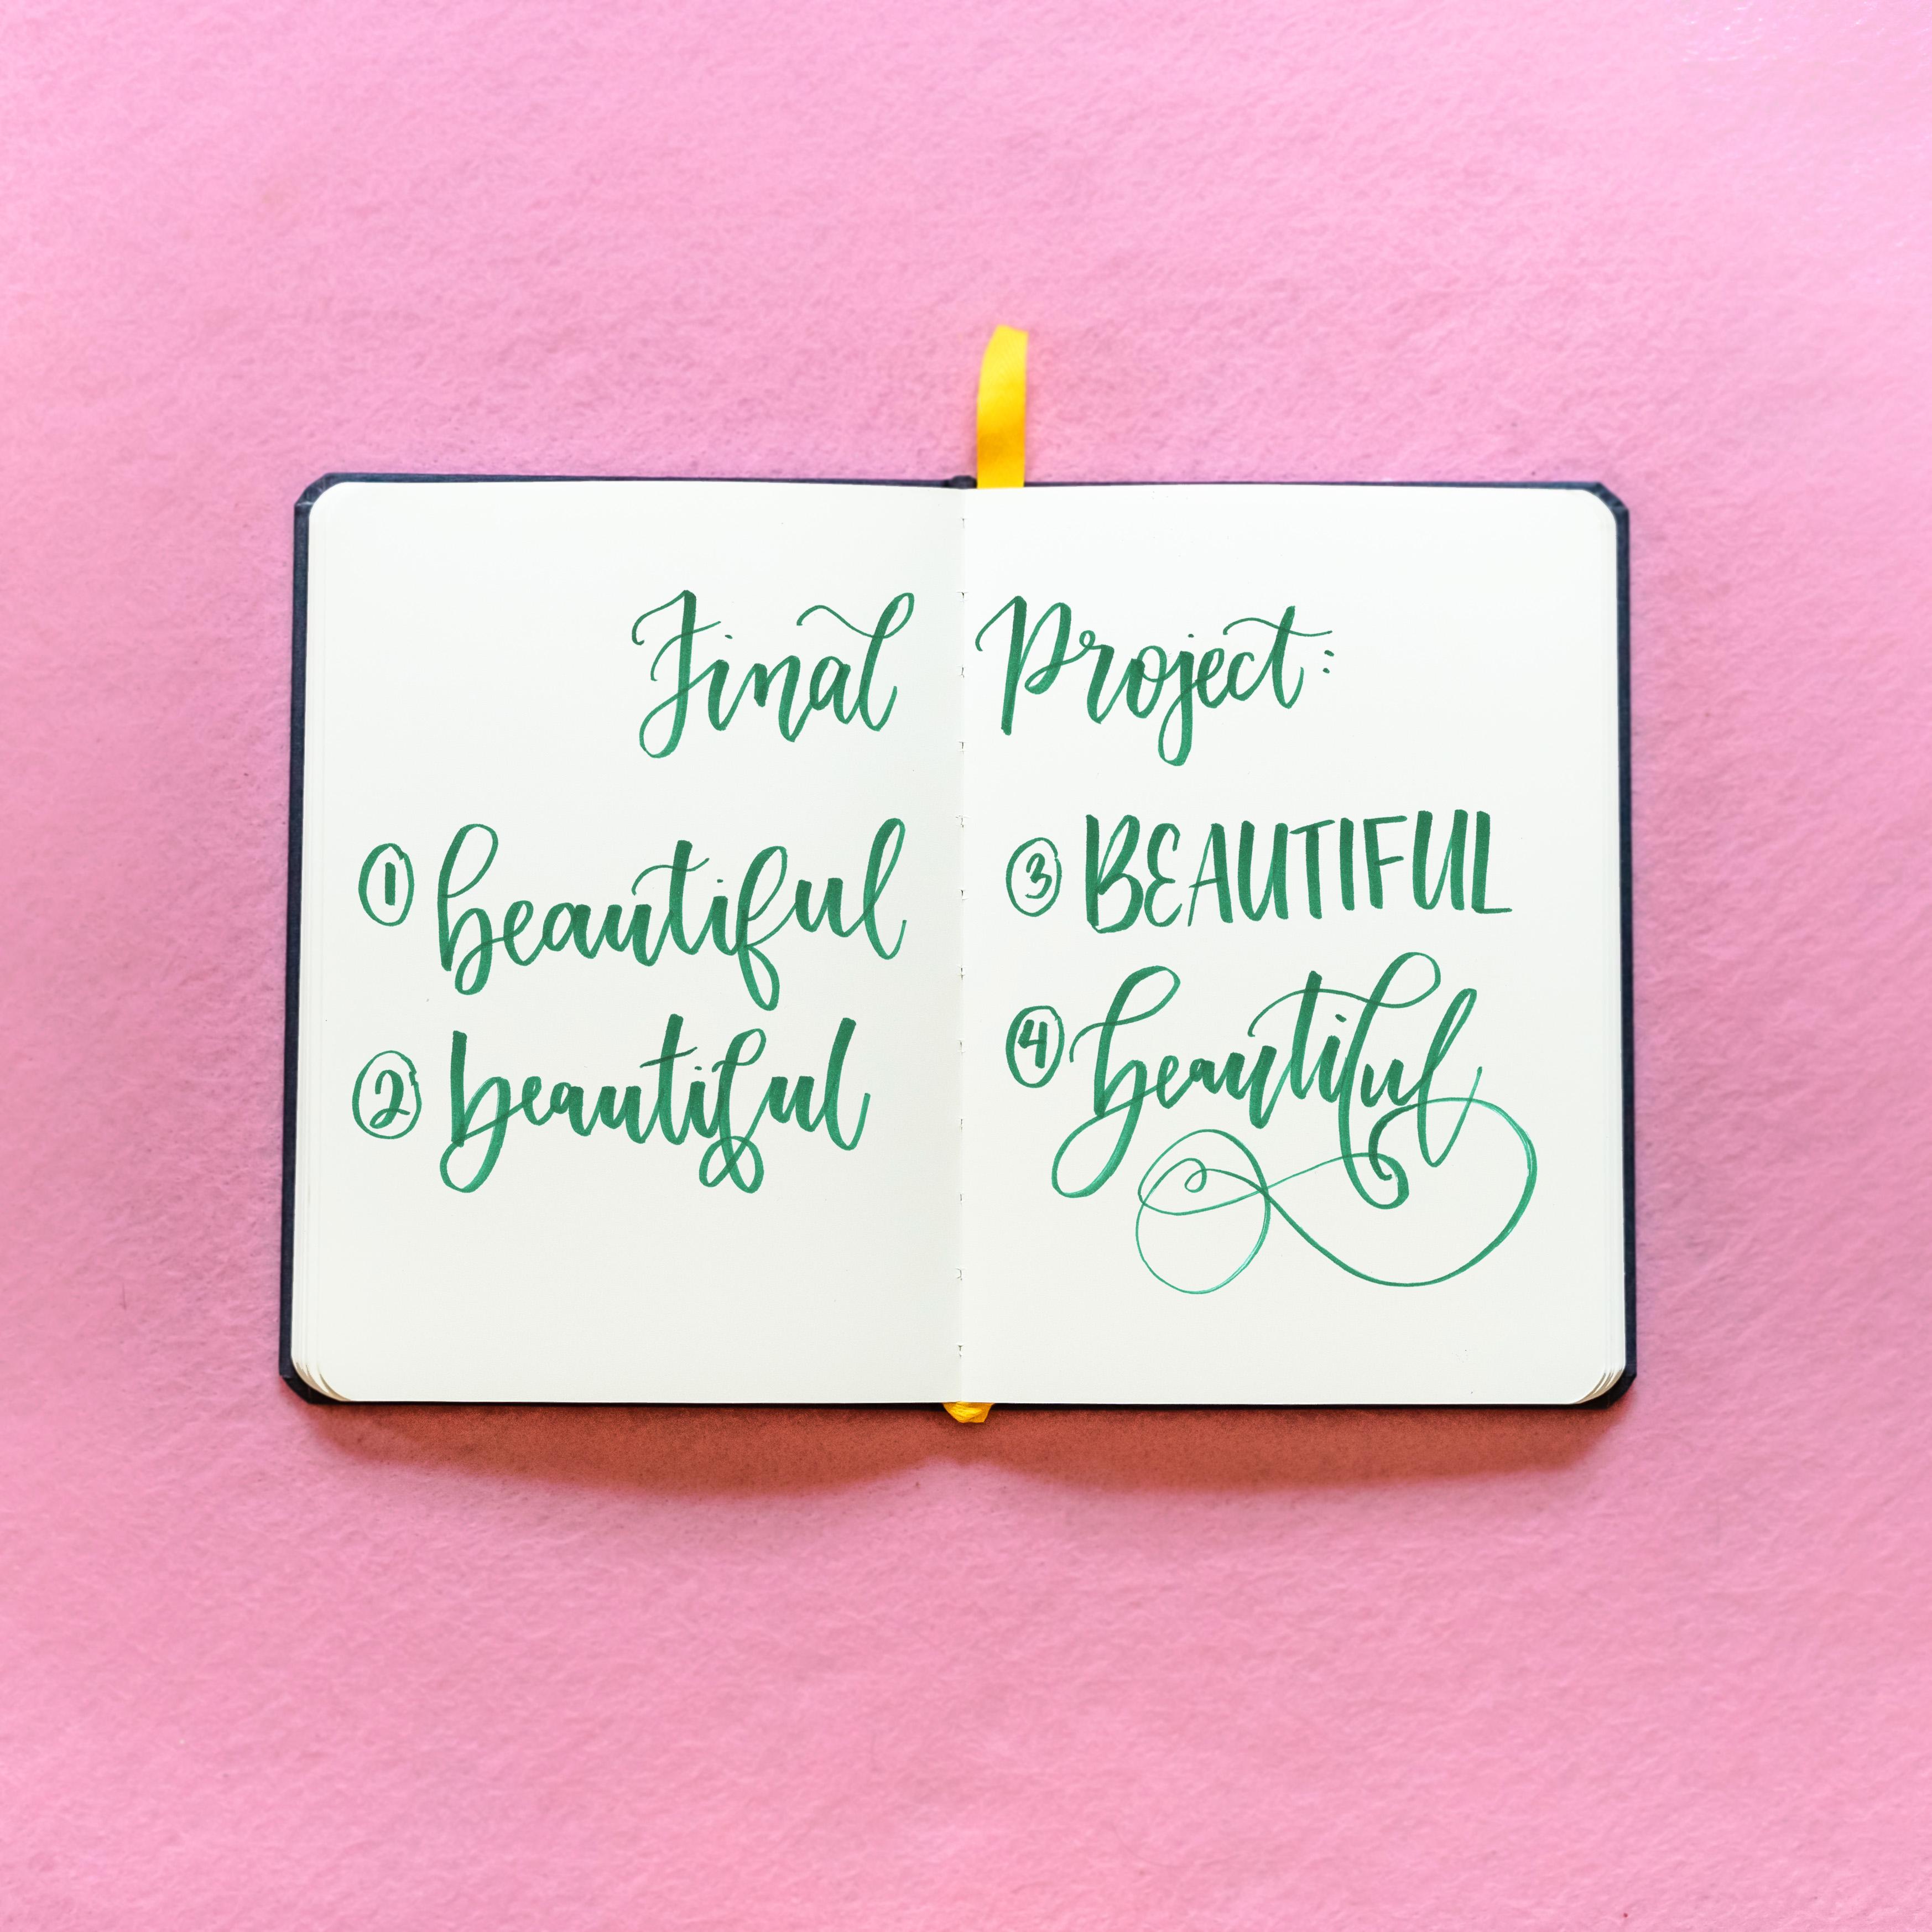 Final Project:
① beautiful
② beautiful
③ BEAUTIFUL
④ beautiful